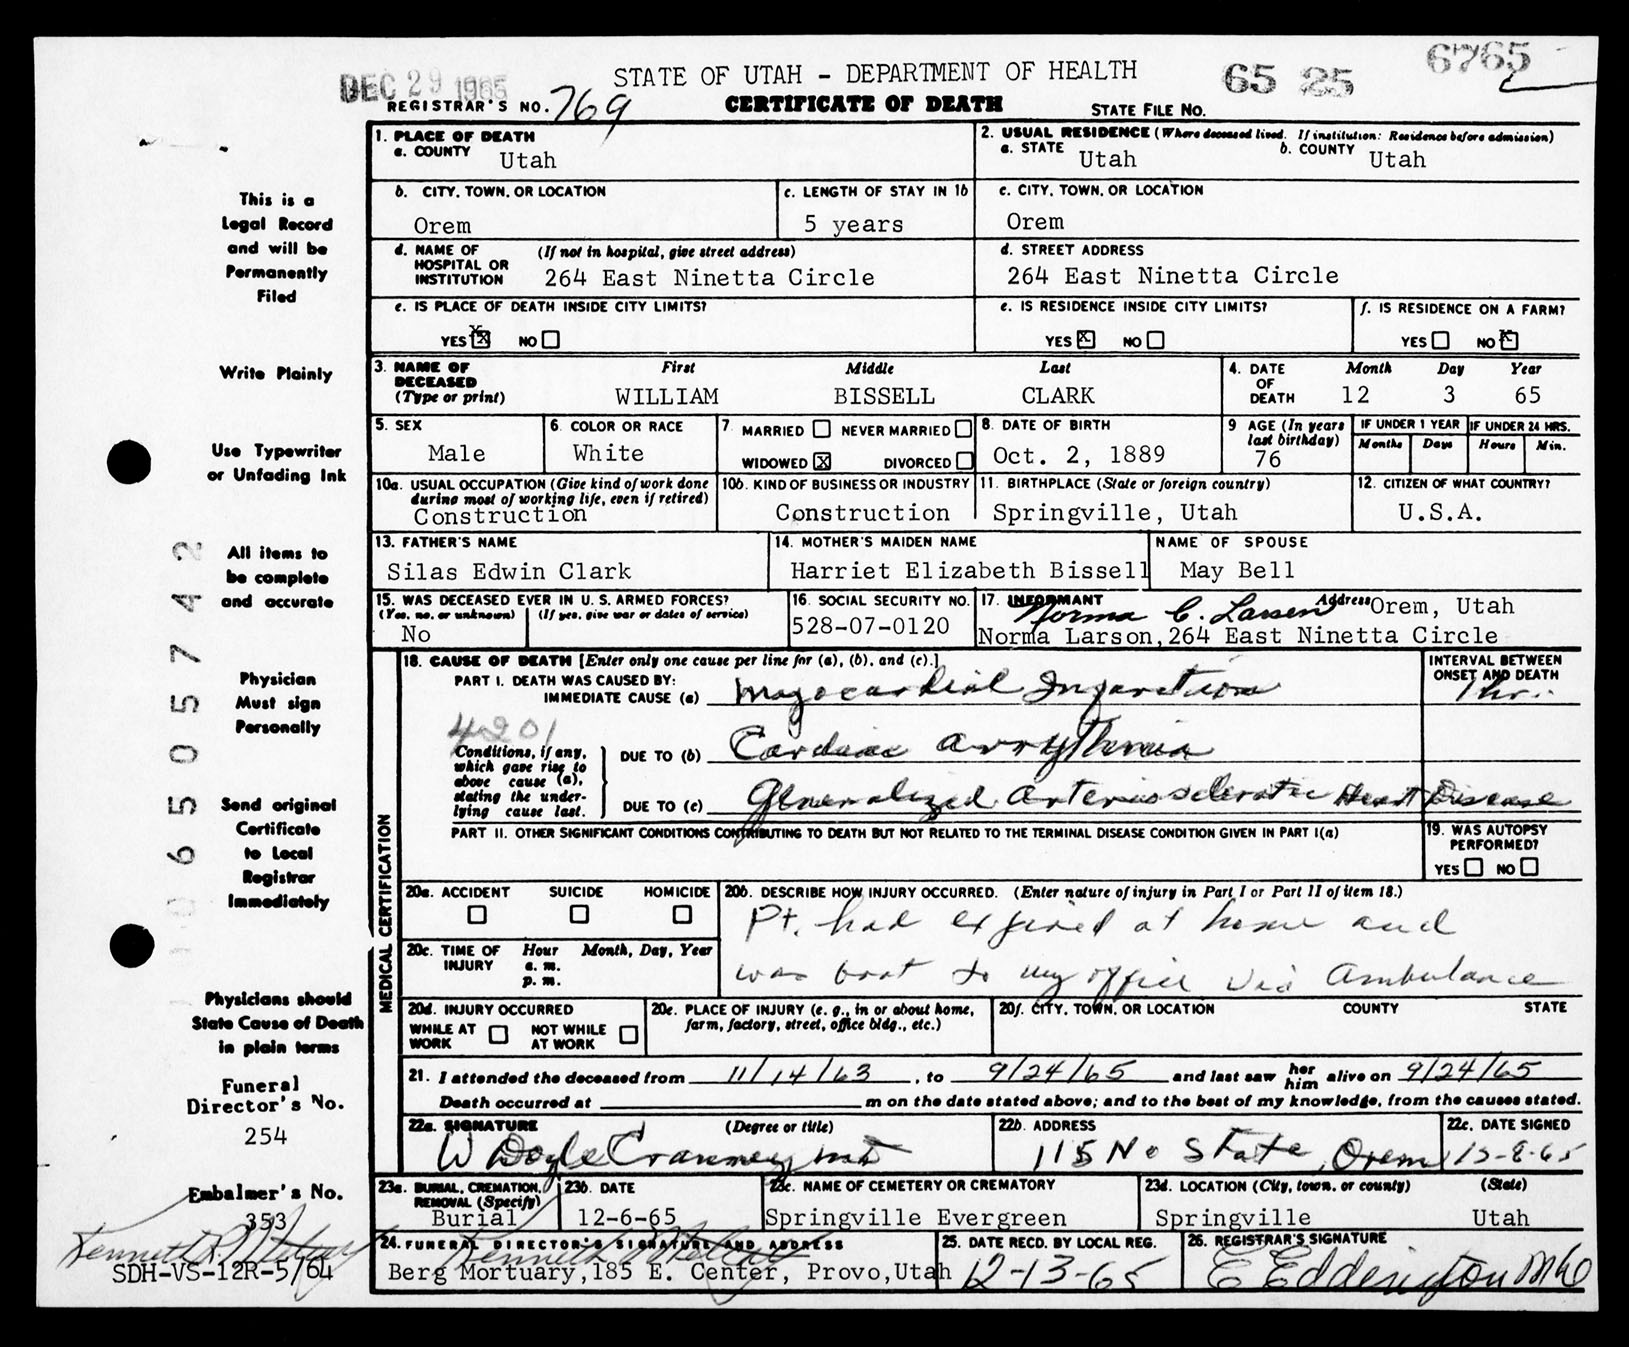 DEC 29 1965
STATE OF UTAH - DEPARTMENT OF HEALTH
65 25
6765
REGISTRAR'S NO. 769
CERTIFICATE OF DEATH
STATE FILE NO.
1. PLACE OF DEATH
a. COUNTY Utah
2. USUAL RESIDENCE (Where deceased lived. If institution: Residence before admission)
a. STATE Utah b. COUNTY Utah
b. CITY, TOWN, OR LOCATION
Orem
c. LENGTH OF STAY IN 1b
5 years
c. CITY, TOWN, OR LOCATION
Orem
d. NAME OF HOSPITAL OR INSTITUTION (If not in hospital, give street address)
264 East Ninetta Circle
d. STREET ADDRESS
264 East Ninetta Circle
e. IS PLACE OF DEATH INSIDE CITY LIMITS?
YES X NO
e. IS RESIDENCE INSIDE CITY LIMITS?
YES X NO
f. IS RESIDENCE ON A FARM?
YES NO X
3. NAME OF DECEASED (Type or print)
First Middle Last
WILLIAM BISSELL CLARK
4. DATE OF DEATH Month Day Year
12 3 65
5. SEX
Male
6. COLOR OR RACE
White
7. MARRIED NEVER MARRIED
WIDOWED X DIVORCED
8. DATE OF BIRTH
Oct. 2, 1889
9 AGE (In years last birthday)
76
IF UNDER 1 YEAR
Months Days
IF UNDER 24 HRS.
Hours Min.
10a. USUAL OCCUPATION (Give kind of work done during most of working life, even if retired)
Construction
10b. KIND OF BUSINESS OR INDUSTRY
Construction
11. BIRTHPLACE (State or foreign country)
Springville, Utah
12. CITIZEN OF WHAT COUNTRY?
U.S.A.
13. FATHER'S NAME
Silas Edwin Clark
14. MOTHER'S MAIDEN NAME
Harriet Elizabeth Bissell
NAME OF SPOUSE
May Bell
15. WAS DECEASED EVER IN U.S. ARMED FORCES?
(Yes, no, or unknown) (If yes, give war or dates of service)
No
16. SOCIAL SECURITY NO.
528-07-0120
17. INFORMANT Norma C. Larsen Address Orem, Utah
Norma Larson, 264 East Ninetta Circle
MEDICAL CERTIFICATION
18. CAUSE OF DEATH [Enter only one cause per line for (a), (b), and (c).]
PART I. DEATH WAS CAUSED BY:
IMMEDIATE CAUSE (a) Myocardial Infarction
INTERVAL BETWEEN ONSET AND DEATH
1 hr.
4201
Conditions, if any, which gave rise to above cause (a), stating the underlying cause last.
DUE TO (b) Cardiac arrythmia
DUE TO (c) Generalized Arteriosclerotic Heart Disease
PART II. OTHER SIGNIFICANT CONDITIONS CONTRIBUTING TO DEATH BUT NOT RELATED TO THE TERMINAL DISEASE CONDITION GIVEN IN PART I(a)
19. WAS AUTOPSY PERFORMED?
YES NO
20a. ACCIDENT SUICIDE HOMICIDE
20b. DESCRIBE HOW INJURY OCCURRED. (Enter nature of injury in Part I or Part II of item 18.)
Pt. had expired at home and
was brot to my office via Ambulance
20c. TIME OF INJURY Hour Month, Day, Year
a. m.
p. m.
20d. INJURY OCCURRED
WHILE AT WORK NOT WHILE AT WORK
20e. PLACE OF INJURY (e. g., in or about home, farm, factory, street, office bldg., etc.)
20f. CITY, TOWN, OR LOCATION COUNTY STATE
21. I attended the deceased from 11/14/63, to 9/24/65 and last saw her him alive on 9/24/65
Death occurred at m on the date stated above; and to the best of my knowledge, from the causes stated.
22a. SIGNATURE (Degree or title)
W Doyle Cranney, MD
22b. ADDRESS
115 No State, Orem
22c. DATE SIGNED
12-8-65
23a. BURIAL, CREMATION, REMOVAL (Specify)
Burial
23b. DATE
12-6-65
23c. NAME OF CEMETERY OR CREMATORY
Springville Evergreen
23d. LOCATION (City, town, or county) (State)
Springville Utah
24. FUNERAL DIRECTOR'S SIGNATURE AND ADDRESS
Berg Mortuary, 185 E. Center, Provo, Utah
25. DATE RECD. BY LOCAL REG.
12-13-65
26. REGISTRAR'S SIGNATURE
This is a
Legal Record
and will be
Permanently
Filed
Write Plainly
Use Typewriter
or Unfading Ink
All items to
be complete
and accurate
Physician
Must sign
Personally
Send original
Certificate
to Local
Registrar
Immediately
Physicians should
State Cause of Death
in plain terms
Funeral
Director's No.
254
Embalmer's No.
353
SDH-VS-12R-5/64
06505742